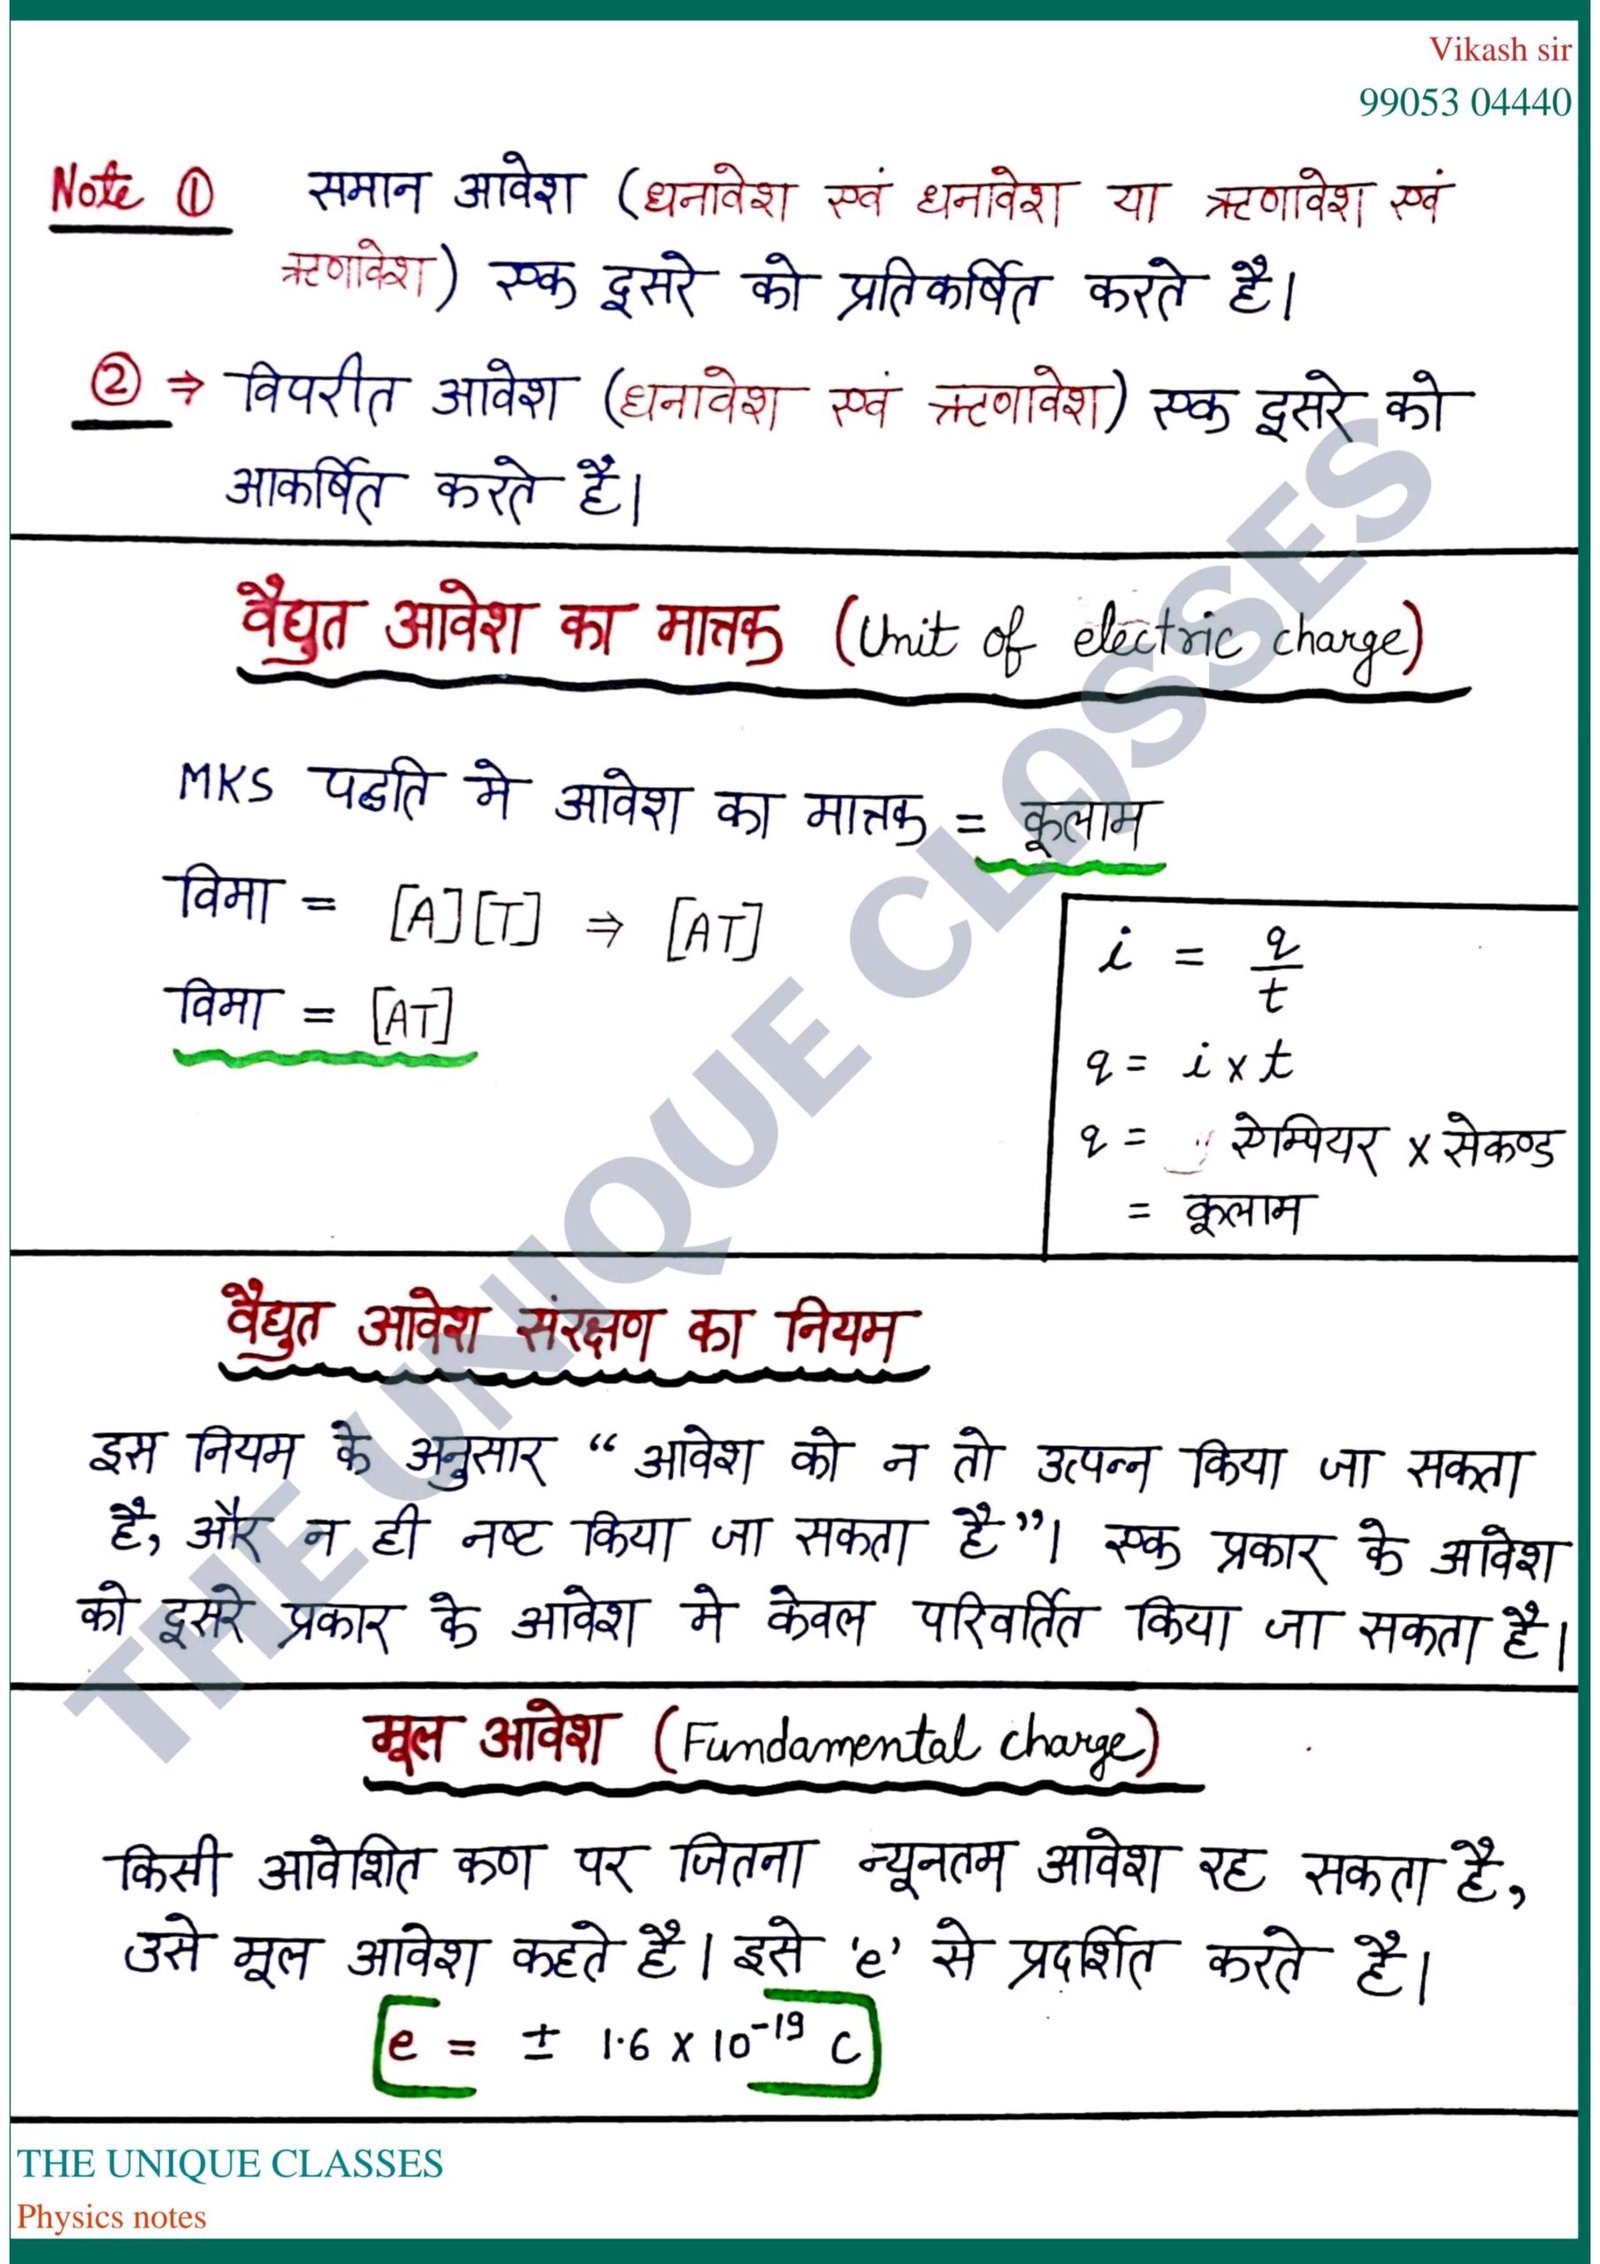 Vikash sir
99053 04440
Note ① समान आवेश (धनावेश एवं धनावेश या ऋणावेश एवं
ऋणावेश) एक दूसरे को प्रतिकर्षित करते है।
② ⇒ विपरीत आवेश (धनावेश एवं ऋणावेश) एक दूसरे को
आकर्षित करते है।
वैद्युत आवेश का मात्रक (Unit of electric charge)
MKS पद्धति मे आवेश का मात्रक = कूलाम
विमा = [A][T] ⇒ [AT]
विमा = [AT]
i = q/t
q = i x t
q = ऐम्पियर x सेकण्ड
= कूलाम
वैद्युत आवेश संरक्षण का नियम
इस नियम के अनुसार “आवेश को न तो उत्पन्न किया जा सकता
है, और न ही नष्ट किया जा सकता है”। एक प्रकार के आवेश
को दूसरे प्रकार के आवेश मे केवल परिवर्तित किया जा सकता है।
मूल आवेश (Fundamental charge)
किसी आवेशित कण पर जितना न्यूनतम आवेश रह सकता है,
उसे मूल आवेश कहते है। इसे 'e' से प्रदर्शित करते है।
e = ± 1.6 x 10⁻¹⁹ C
THE UNIQUE CLOSSES
THE UNIQUE CLASSES
Physics notes